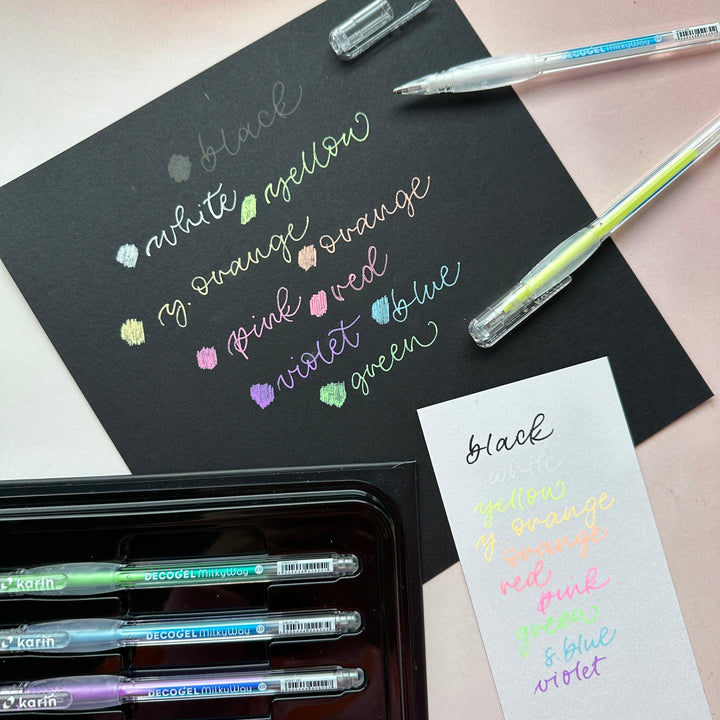 DECOGEL MilkyWay
black
white yellow
y. orange orange
pink red
violet blue
green
black
white
yellow
y. orange
orange
red
pink
green
s. blue
violet
karin DECOGEL MilkyWay 1.0
karin DECOGEL MilkyWay 1.0
karin DECOGEL MilkyWay 1.0